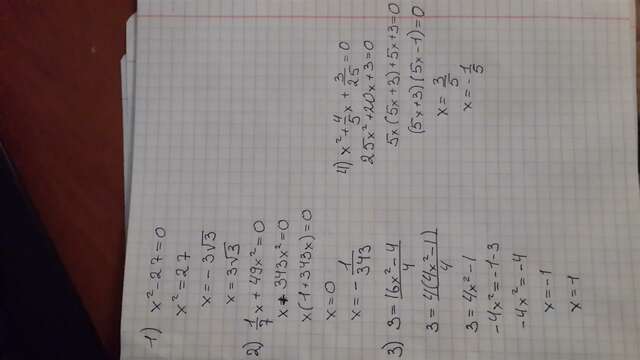 1) x²-27=0
x²=27
x=-3√3
x=3√3
2) 1/7x+49x²=0
x+343x²=0
x(1+343x)=0
x=0
x=-1/343
3) 3=16x²-4/4
3=4(4x²-1)/4
3=4x²-1
-4x²=-1-3
-4x²=-4
x=-1
x=1
4) x²+4/5x+3/25=0
25x²+20x+3=0
5x(5x+3)+5x+3=0
(5x+3)(5x-1)=0
x=3/5
x=-1/5